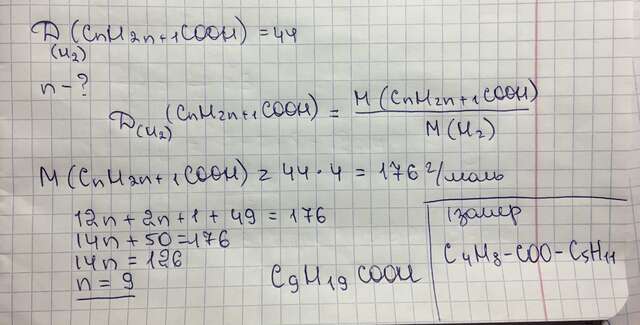 D(H2) (CnH2n+1COOH) = 44
n - ?
D(H2) (CnH2n+1COOH) = M(CnH2n+1COOH) / M(H2)
M(CnH2n+1COOH) = 44 · 4 = 176 г/моль
12n + 2n + 1 + 49 = 176
14n + 50 = 176
14n = 126
n = 9
C9H19COOH
Ізомер
C4H8-COO-C5H11